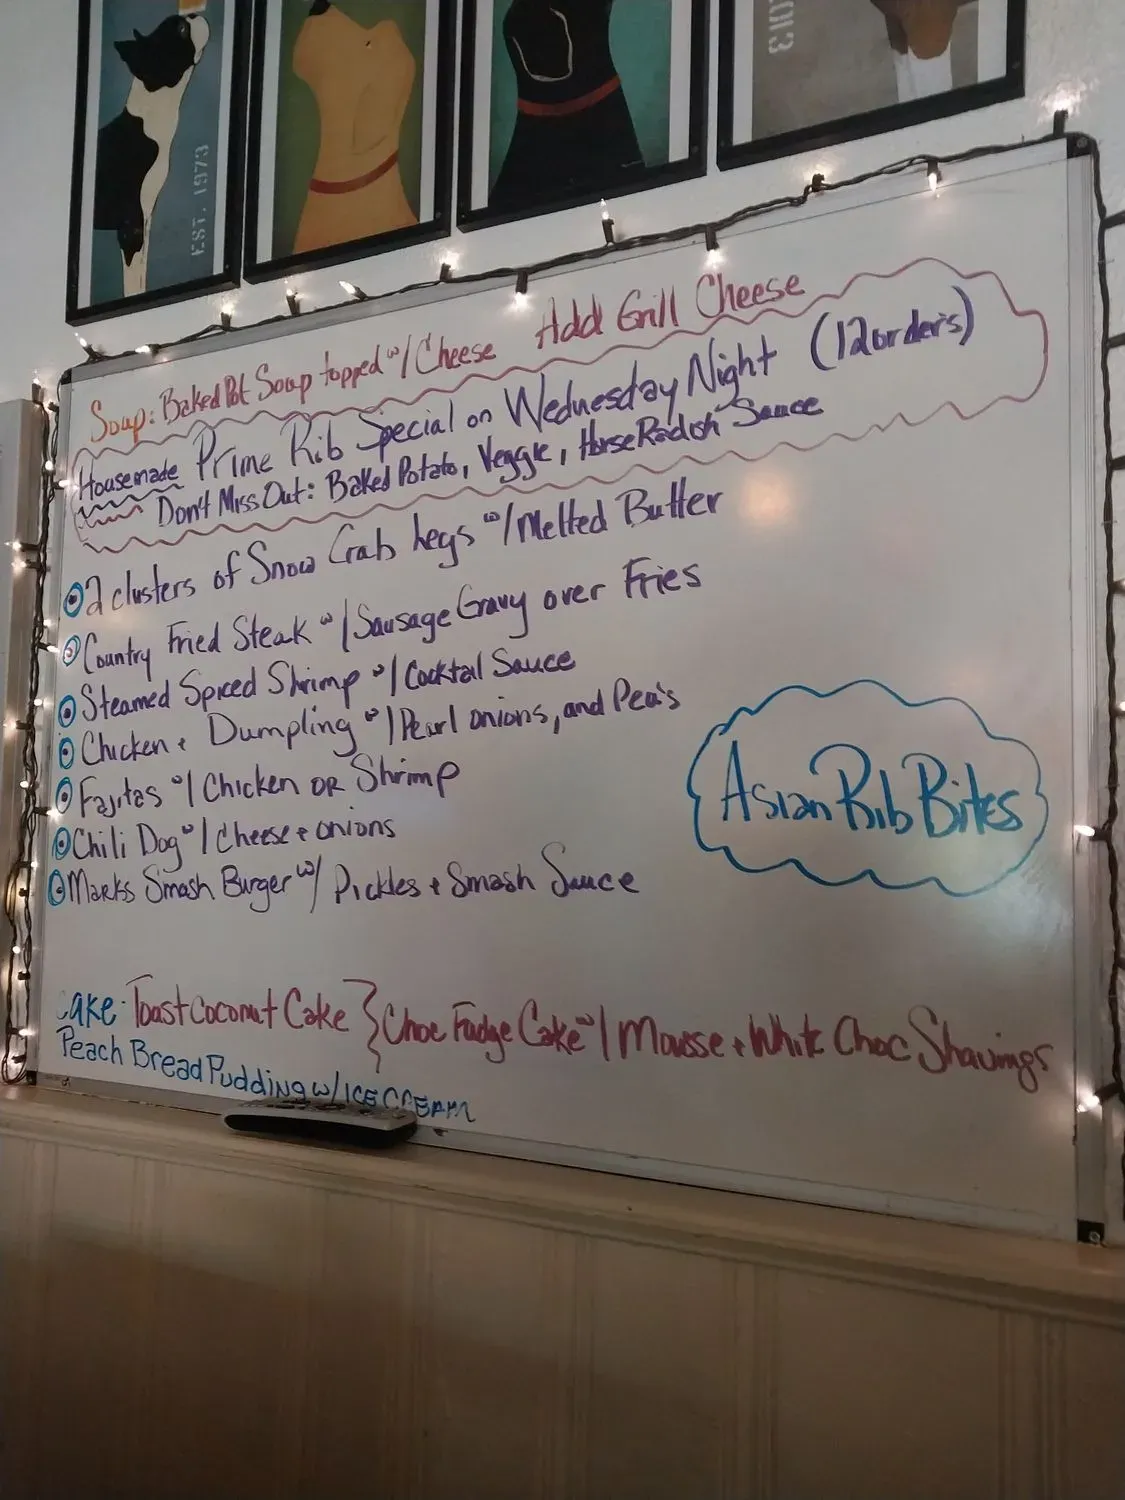 EST. 1973
2013
Soup: Baked Pot Soup topped w/ Cheese Add Grill Cheese
Housemade Prime Rib Special on Wednesday Night (12 order's)
Don't Miss Out: Baked Potato, Veggie, HorseRadish Sauce
2 clusters of Snow Crab Legs w/ Melted Butter
Country Fried Steak w/ Sausage Gravy over Fries
Steamed Spiced Shrimp w/ Cocktail Sauce
Chicken + Dumpling w/ Pearl onions, and Pea's
Fajitas w/ Chicken OR Shrimp
Chili Dog w/ Cheese + onions
Marks Smash Burger w/ Pickles + Smash Sauce
Asian Rib Bites
Cake: Toast Coconut Cake } Choc Fudge Cake w/ Mousse + White Choc Shavings
Peach Bread Pudding w/ ICE CREAM